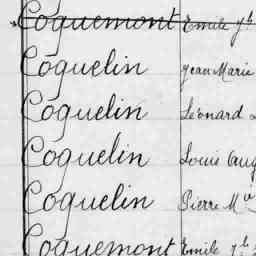 Coquemont Emile
Coquelin Jean Marie
Coquelin Léonard
Coquelin Louis Aug
Coquelin Pierre M
Coquemont Emile